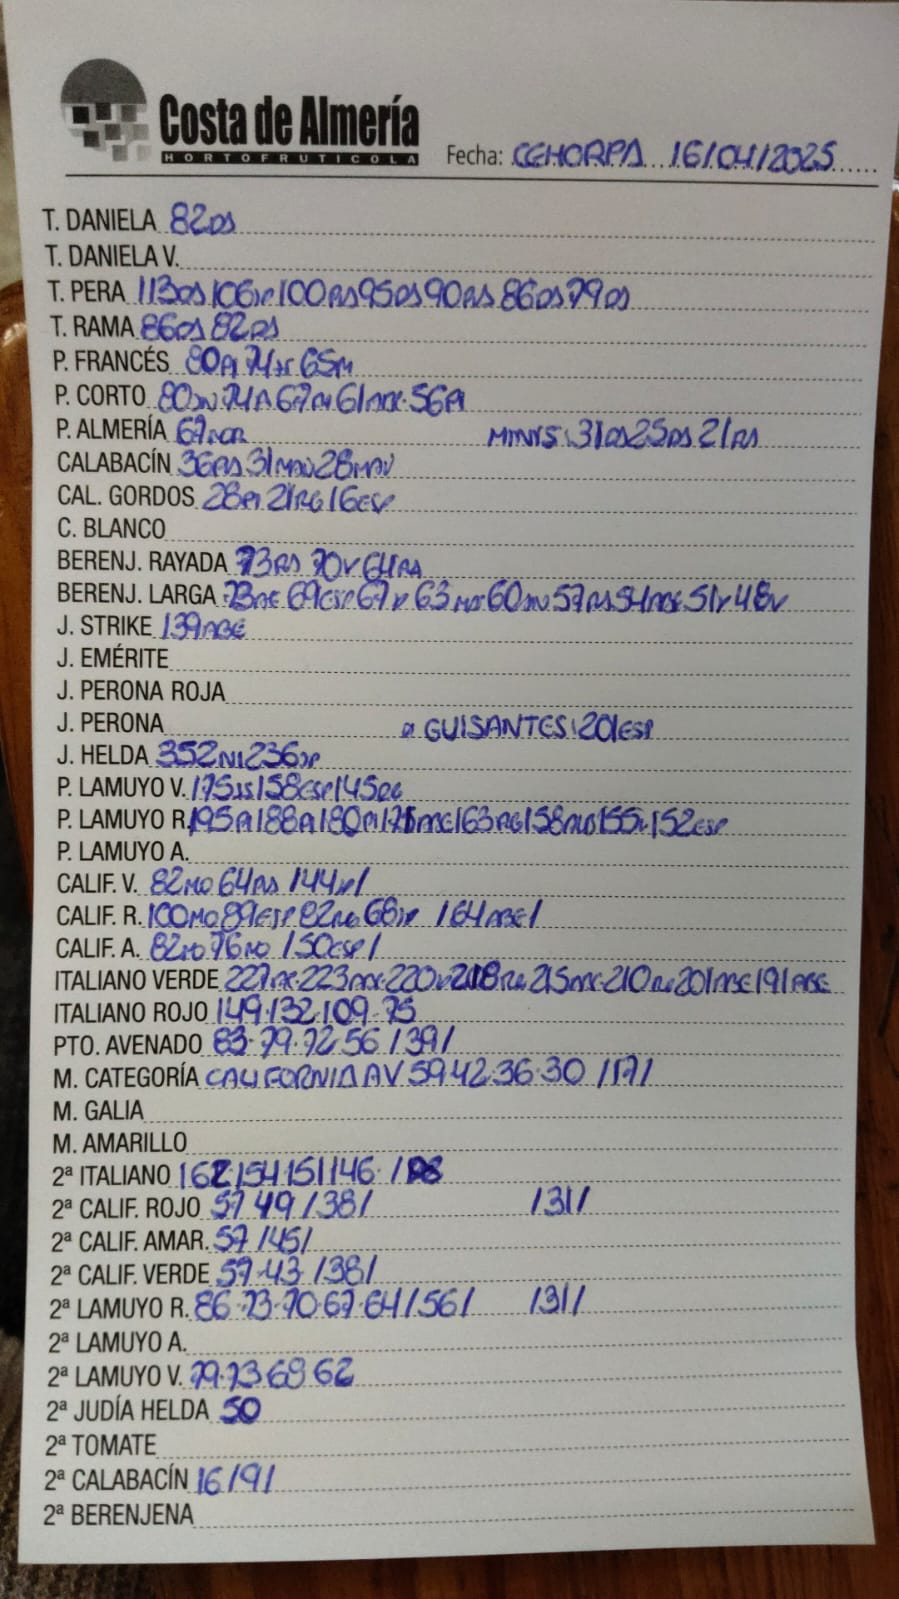 Costa de Almería
HORTOFRUTICOLA
Fecha: CEHORPA 16/04/2025
T. DANIELA 82DS
T. DANIELA V.
T. PERA 113DS 106JP 100RS 95DS 90RS 86DS 79DS
T. RAMA 86DS 82DS
P. FRANCÉS 80PI 74 65M
P. CORTO 80JN 74 67 61 56PI
P. ALMERÍA 67 MINIS: 31DS 25DS 21RS
CALABACÍN 36RS 31MAV 28MAV
CAL. GORDOS 28PI 21RG 16ESP
C. BLANCO
BERENJ. RAYADA 73RS 70V 64RS
BERENJ. LARGA 73 69ESP 67JP 63 60JN 57RS 54 51 48V
J. STRIKE 139ABE
J. EMÉRITE
J. PERONA ROJA
J. PERONA GUISANTES: 201ESP
J. HELDA 352NI 236JP
P. LAMUYO V. 175 158ESP 145
P. LAMUYO R. 195PI 188PI 180PI 163RG 158 155 152ESP
P. LAMUYO A.
CALIF. V. 82MO 64RS /144JP/
CALIF. R. 100MO 89ESP 82 68JP /164ABE/
CALIF. A. 82MO 76MO /50ESP/
ITALIANO VERDE 227 223 220 218 215 210 201 191ABE
ITALIANO ROJO 149·132·109·75
PTO. AVENADO 83·79·72·56 /39/
M. CATEGORÍA CALIFORNIA AV 59·42·36·30 /17/
M. GALIA
M. AMARILLO
2ª ITALIANO 162 154 151 146
2ª CALIF. ROJO 57 49 /38/ /31/
2ª CALIF. AMAR. 57 /45/
2ª CALIF. VERDE 57·43 /38/
2ª LAMUYO R. 86·73·70·67·64 /56/ /31/
2ª LAMUYO A.
2ª LAMUYO V. 79·73 68 62
2ª JUDÍA HELDA 50
2ª TOMATE
2ª CALABACÍN 16 /9/
2ª BERENJENA